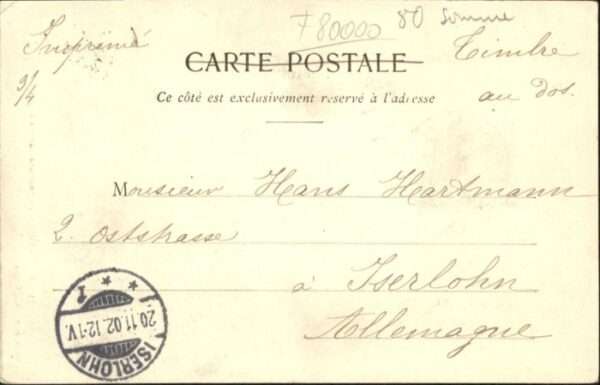 F80000 80 Somme
Imprimé
Timbre
au dos.
3/4
CARTE POSTALE
Ce côté est exclusivement reservé à l'adresse
Monsieur Hans Hartmann
2. Oststrasse
à Iserlohn
Allemagne
ISERLOHN
20.11.02.12-1V.
* * 1